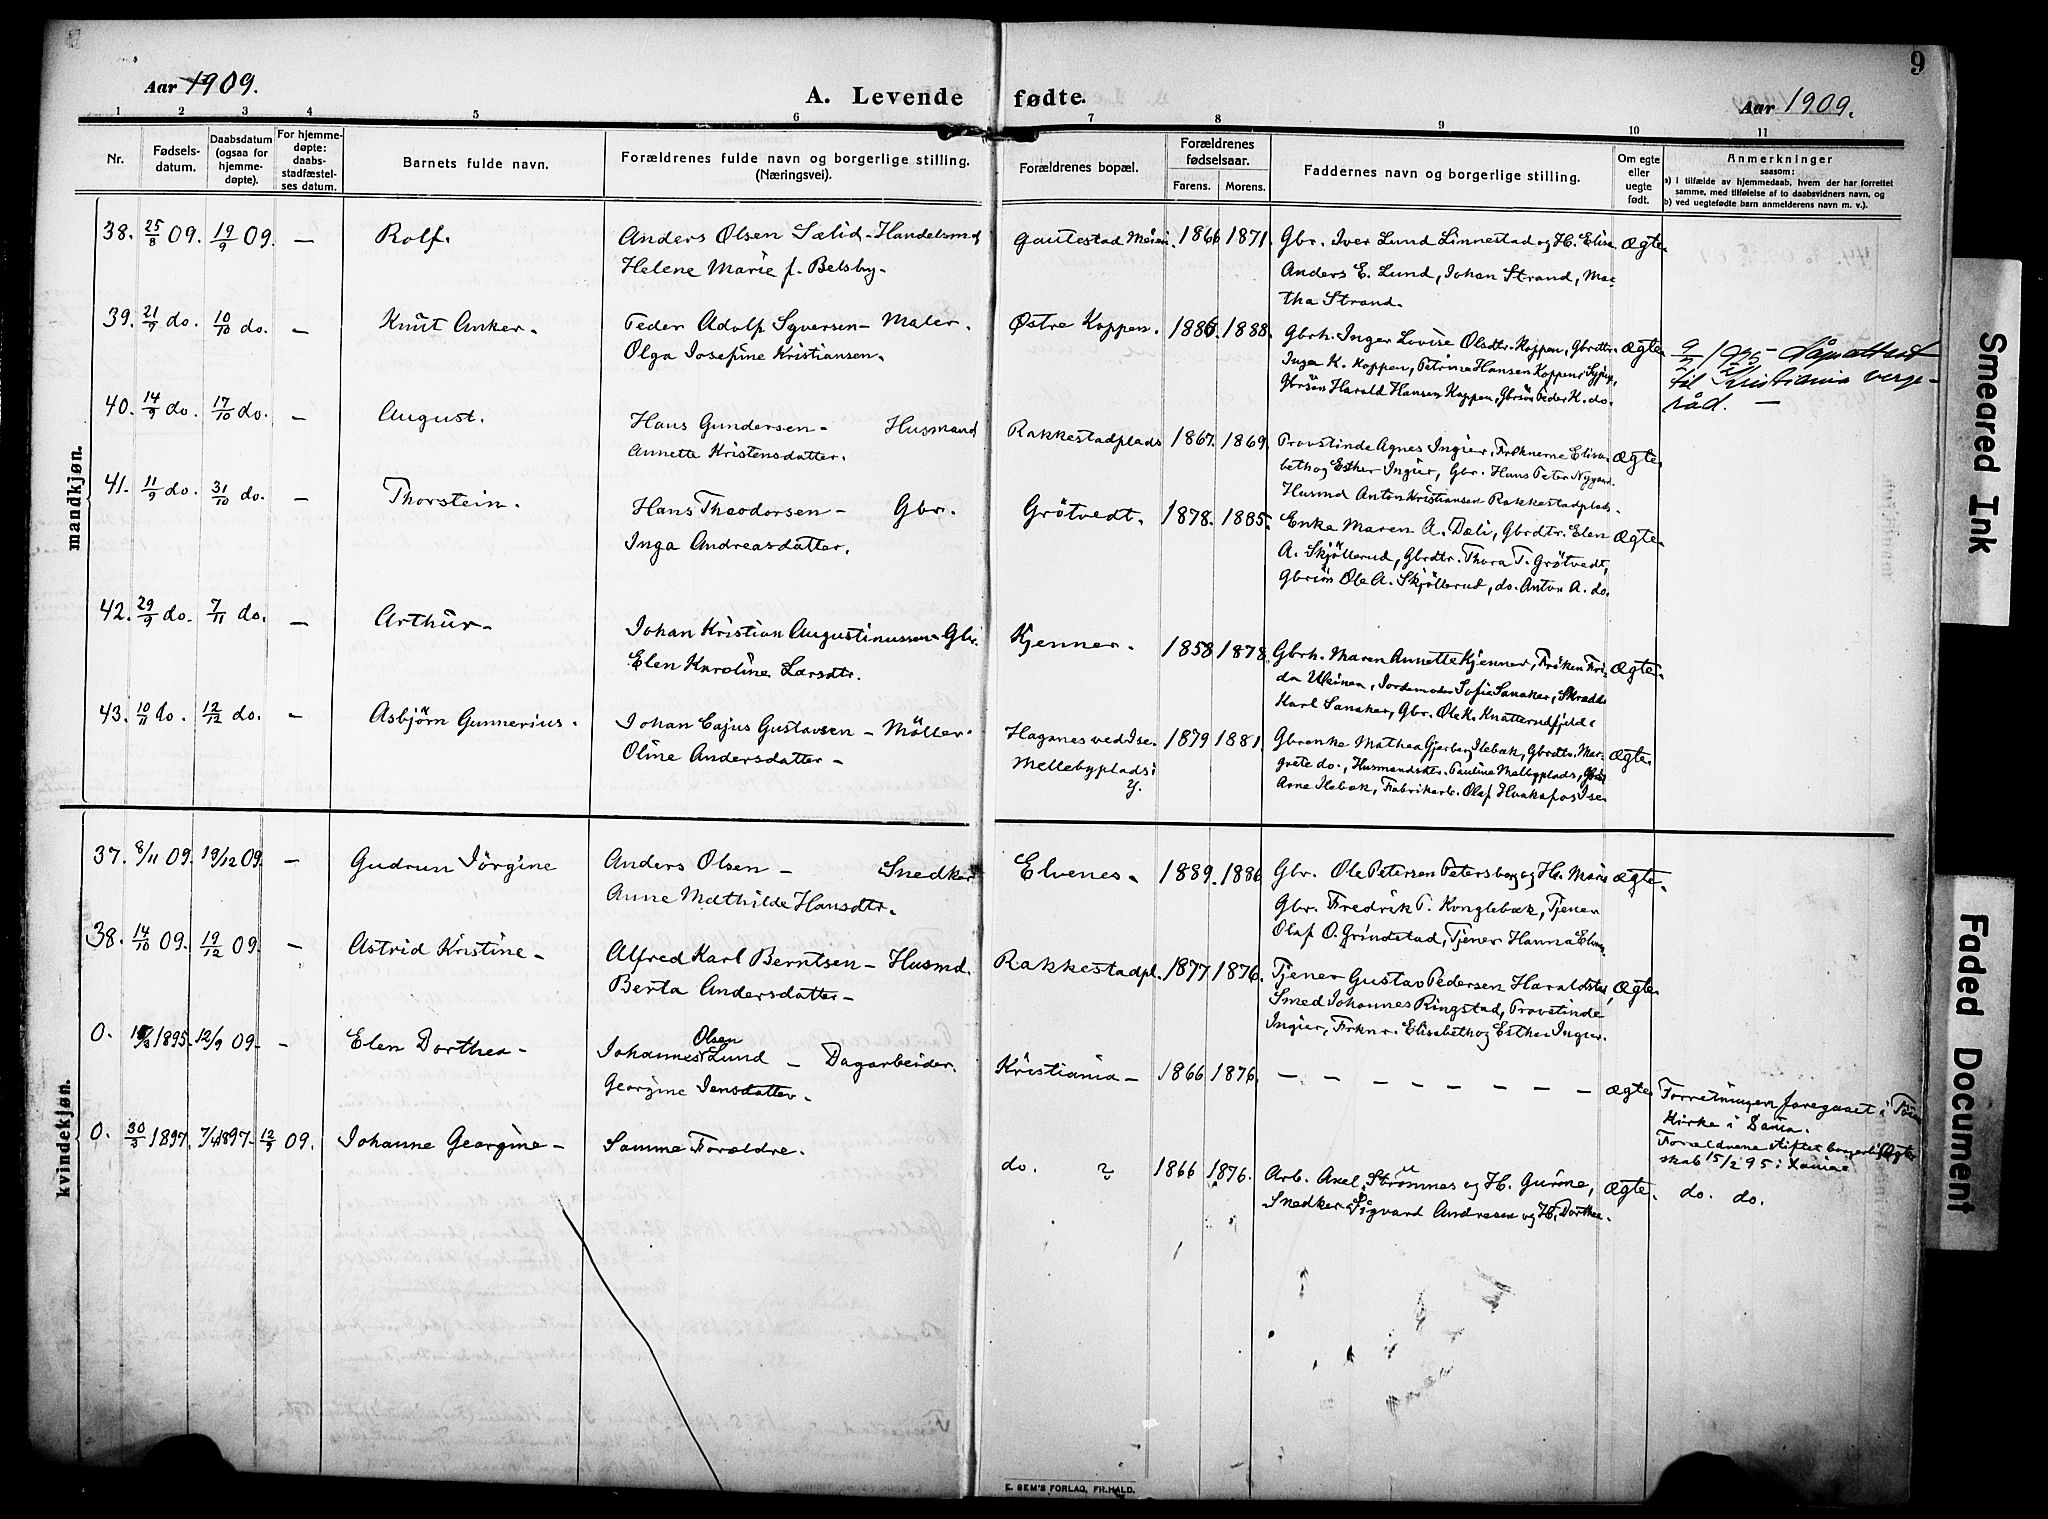 9
Aar 1909.
A. Levende fødte.
Aar 1909.
1 2 3 4 5 6 7 8 9 10 11
Nr.
Fødsels-
datum.
Daabsdatum
(ogsaa for
hjemme-
døpte).
For hjemme-
døpte:
daabs-
stadfæstel-
ses datum.
Barnets fulde navn.
Forældrenes fulde navn og borgerlige stilling.
(Næringsvei).
Forældrenes bopæl.
Forældrenes
fødselsaar.
Farens. Morens.
Faddernes navn og borgerlige stilling.
Om egte
eller
uegte
født.
Anmerkninger
saasom:
a) i tilfælde av hjemmedaab, hvem der har forrettet
samme, med tilføielse af to daabsvidners navn, og
b) ved uegtefødte barn anmelderens navn m. v.).
mandkjøn.
38. 25/8 09. 19/9 09. – Rolf. Anders Olsen Sælid - Handelsmd Gautestad 1866 1871. Gbr. Iver Lund Linnestad og H. Elise Ægte
Helene Marie f. Belsby - Anders E. Lund, Johan Strand, Mar-
tha Strand.
39. 21/9 do. 10/10 do. – Knut Anker - Peder Adolf Syversen - Maler. Østre Koppen. 1886. 1888. Gbrh. Inger Lovise Olsdtr. Koppen, Gbrdtr. Ægte
Olga Josefine Kristiansen - Inga K. Koppen, Petrine Hansen Koppen
Gbrsön Harald Hansen Koppen, Gbrsön Peder K. do.
9/2 1925
til Kristiania verge-
råd. –
40. 14/9 do. 17/10 do. – August. Hans Gundersen - Husmand Rakkestadplads 1867. 1869. Provstinde Agnes Ingier, Frøknerne Elisa- Ægte
Annette Kristensdatter. beth og Esther Ingier, Gbr. Hans Peter Nygaard
Husmd Anton Kristiansen Rakkestadplads.
41. 11/9 do. 31/10 do. – Thorstein. Hans Theodorsen - Gbr. Grötvedt. 1878. 1885. Enke Maren A. Dæli, Gbrdtr. Elen Ægte
Inga Andreasdatter. A. Skjöllerud, Gbrdtr. Thora T. Grötvedt,
Gbrsön Ole A. Skjöllerud, do. Anton A. do.
42. 29/9 do. 7/11 do. – Arthur - Johan Kristian Augustinussen - Gbr. Kjenner. 1858 1878. Gbrh. Maren Annette Kjenner, Frøken Fri- Ægte
Elen Karoline Larsdtr. da Jordemoder Sofie Sanaker, Skrædder
Karl Sanaker, Gbr. Ole K. Knatterudfjeld.
43. 10/11 do. 12/12 do. – Asbjörn Gunnerius. Johan Cajus Gustavsen - Möller. Haganes ved Ise. 1879 1881. Gbrenke Mathea Gjerberg Ilebæk, Gbrdtr. Mar- Ægte
Oline Andersdatter - Mellebyplads i grete do., Pauline Mellbyplads,
Y. Arne Ilebæk, Fabrikarb. Olaf Ise
kvindekjøn.
37. 8/11 09. 19/12 09. – Gudrun Jörgine Anders Olsen - Snedker Elvenes. 1889. 1886 Gbr. Ole Petersen Petersborg og H. Marie Ægte
Anne Mathilde Hansdtr. Gbr. Fredrik P. Konglebæk, Tjener
Olaf O. Grindstad, Tjener Hanna
38. 14/10 09. 19/12 09. – Astrid Kristine - Alfred Karl Berntsen - Husmd. Rakkestadpl. 1877 1876. Tjener Gustav Pedersen Haraldstad, Ægte
Berta Andersdatter - Smed Johannes Ringstad, Provstinde
Ingier, Frknr. Elisabeth og Esther Ingier.
0. 1895. 12/9 09 – Elen Dorthea - Johannes Olsen Lund - Dagarbeider. Kristiania - 1866 1876. – – – – – – – Ægte
Georgine Jensdatter.
Forretningen foregaaet i
Kirke i
Forældrene stiftet borgerlig Ægte-
skab 15/2 95 i
0. 30/3 1897. 7/4 1897 - 12/9 09. Johanne Georgine - Samme Forældre. do. 1866 1876. Arb. Axel Strømnes og H. Gurine, Ægte. do. do.
Snedker Sigvard Andresen og H. Dorthea.
E. SEM'S FORLAG, FR.HALD.
Smeared Ink
Faded Document